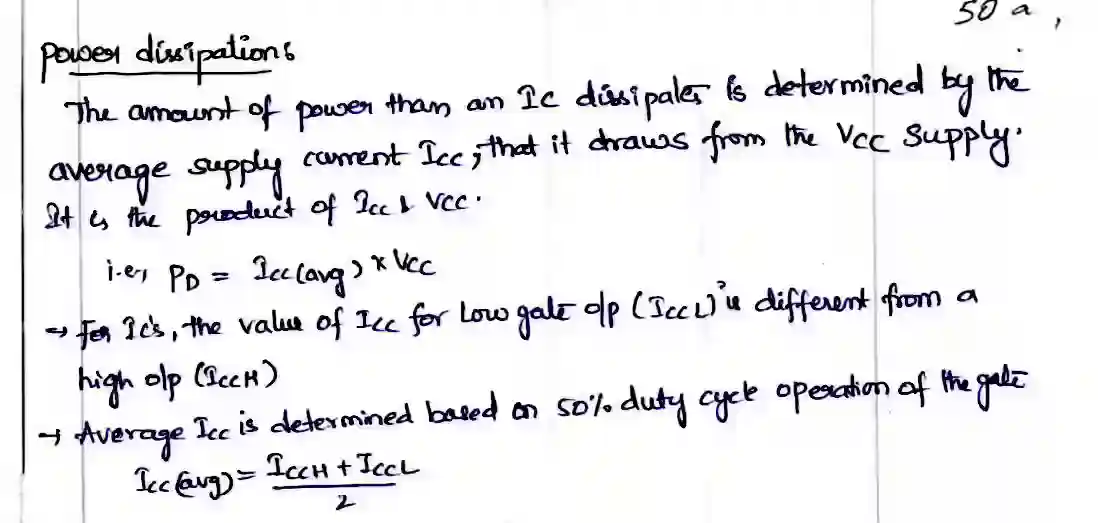 50 a,
Power dissipations
The amount of power than an IC dissipates is determined by the
average supply current Icc, that it draws from the Vcc supply.
It is the product of Icc & Vcc.
i.e, PD = Icc(avg) x Vcc
→ For Ic's, the value of Icc for Low gate o/p (IccL) is different from a
high o/p (IccH)
→ Average Icc is determined based on 50% duty cycle operation of the gate
Icc(avg) = IccH + IccL
2